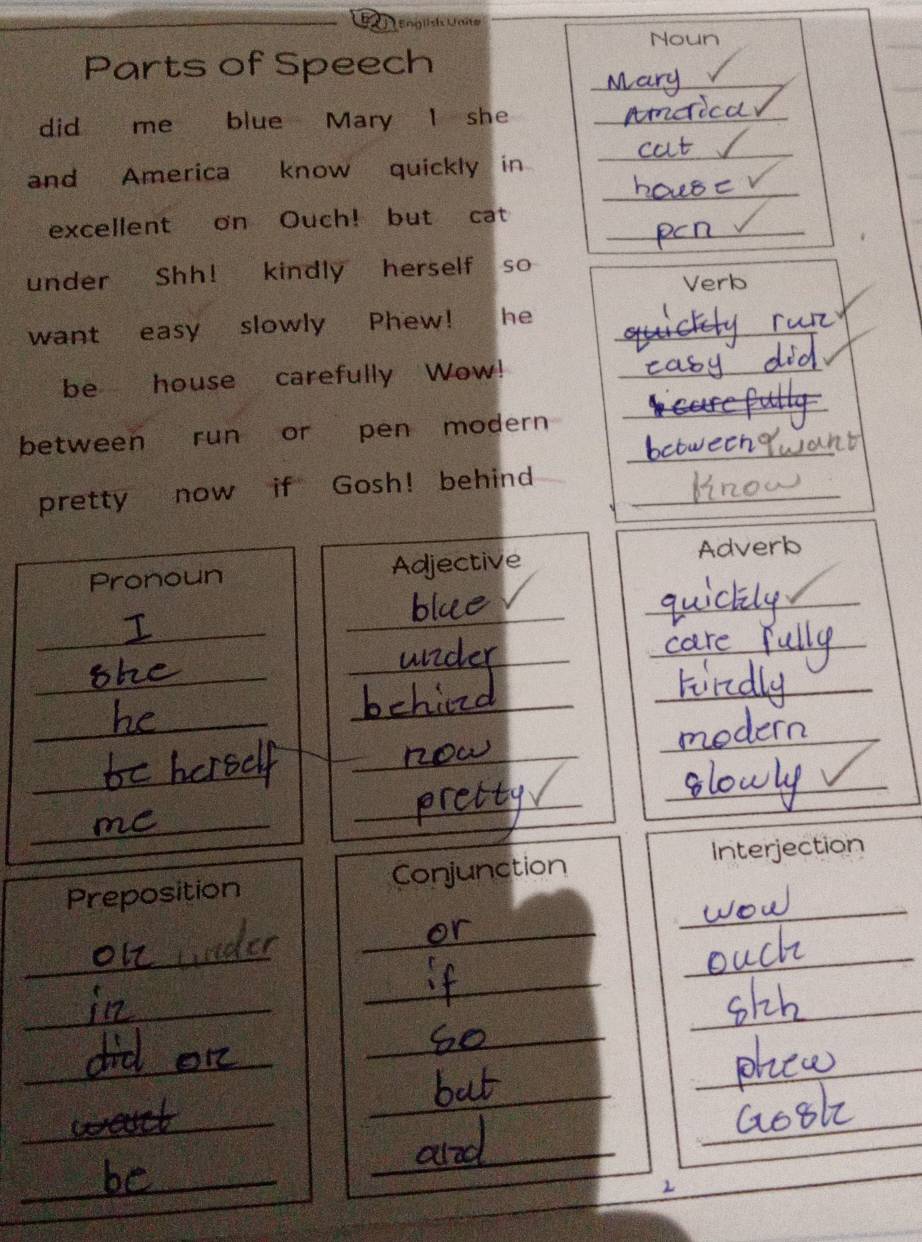 English Unite
Parts of Speech
did me blue Mary I she
and America know quickly in
excellent on Ouch! but cat
under Shh! kindly herself so
want easy slowly Phew! he
be house carefully Wow!
between run or pen modern
pretty now if Gosh! behind
Noun
Mary ✓
America ✓
cat ✓
house ✓
pen ✓
Verb
quickly run ✓
easy did ✓
carefully
between want
know
Pronoun
I
she
he
be herself
me
Adjective
blue ✓
under
behind
now
pretty ✓
Adverb
quickly ✓
care fully
kindly
modern
slowly ✓
Preposition
on under
in
did on
be
Conjunction
or
if
so
but
and
Interjection
wow
ouch
shh
phew
Gosh
2